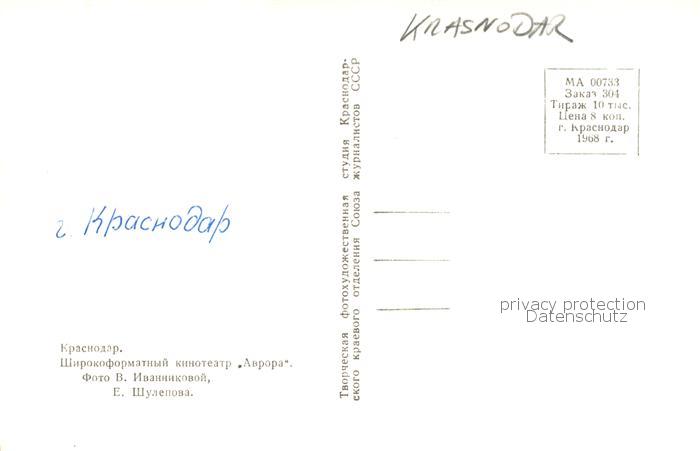 KRASNODAR
МА 00733
Заказ 304
Тираж 10 тыс.
Цена 8 коп.
г. Краснодар
1968 г.
Творческая фотохудожественная студия Краснодар-
ского краевого отделения Союза журналистов СССР
г. Краснодар
privacy protection
Datenschutz
Краснодар.
Широкоформатный кинотеатр „Аврора“.
Фото В. Иванниковой,
Е. Шулепова.